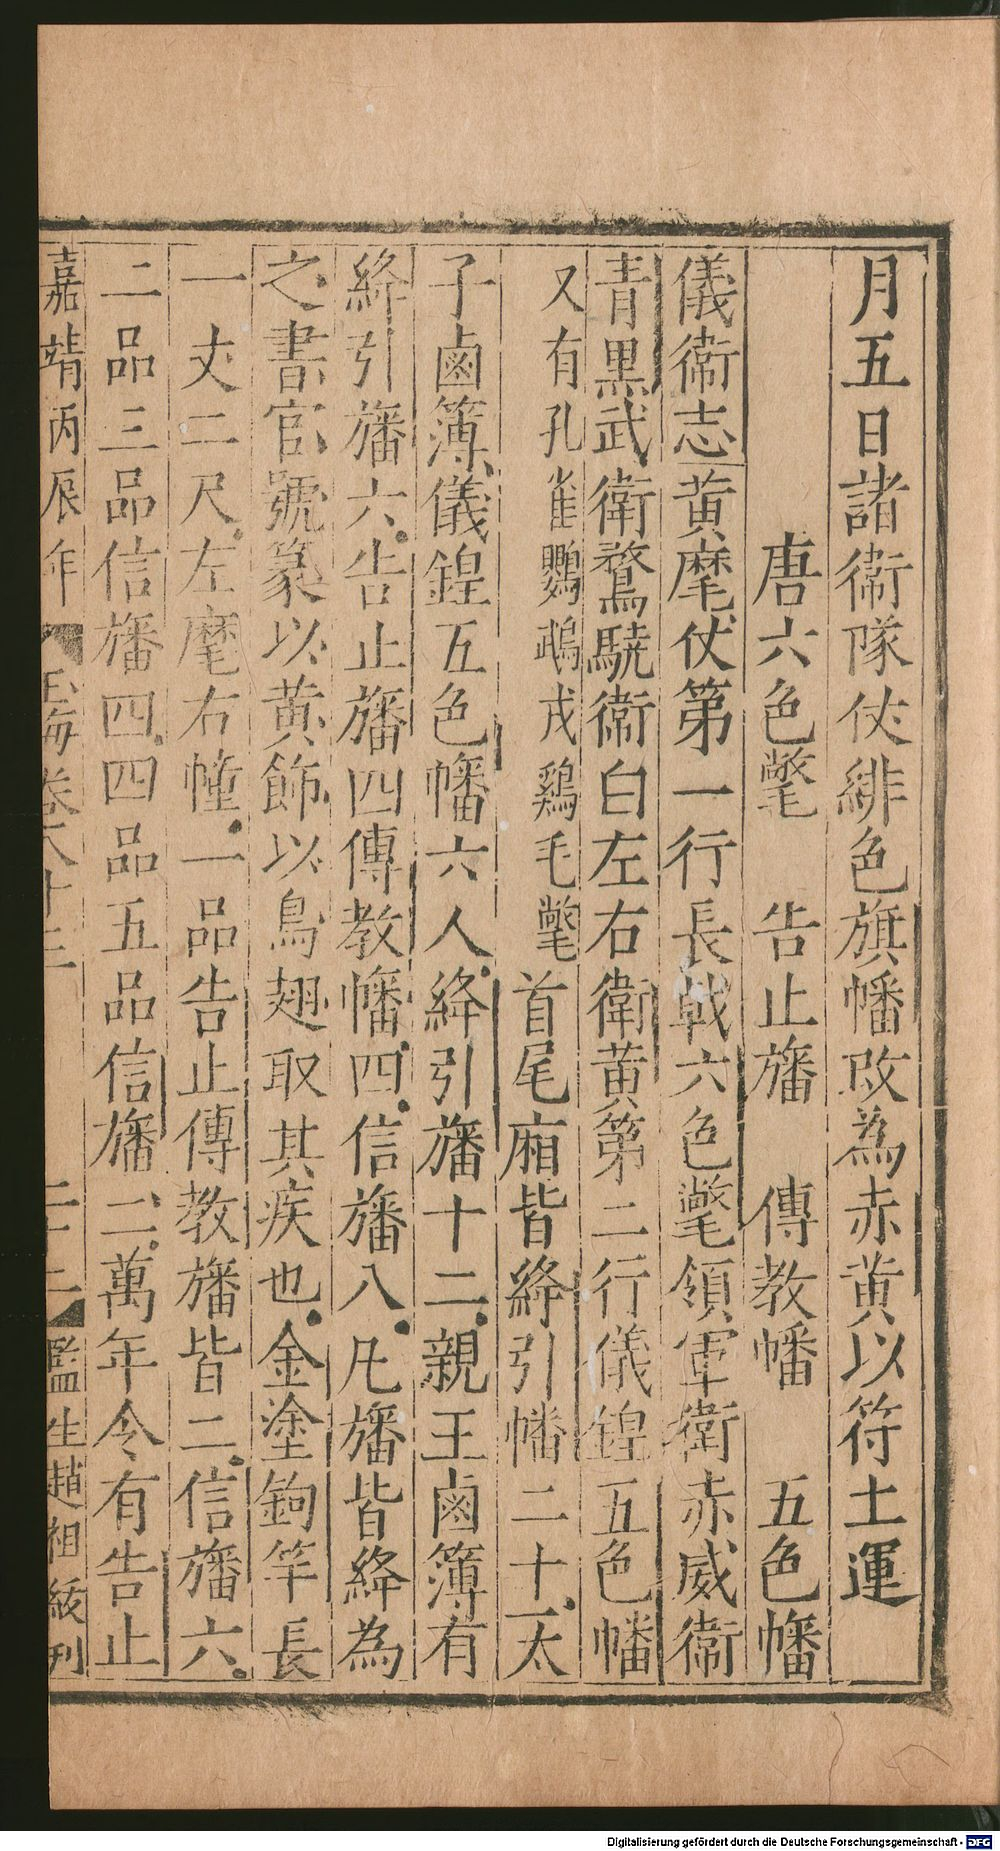 月五日諸衛隊仗緋色旗幡改為赤黄以符土運
唐六色氅 告止旛 傳教幡 五色幡
儀衛志黄麾仗第一行長戟六色氅領軍衛赤威衛
青黒武衛鶩驍衛白左右衛黄第二行儀鍠五色幡
又有孔雀鸚鵡戎鷄毛氅首尾廂皆絳引幡二十太
子鹵簿儀鍠五色幡六人絳引旛十二親王鹵簿有
絳引旛六告止旛四傳教幡四信旛八凡旛皆絳為
之書官號篆以黄飾以鳥翅取其疾也金塗鉤竿長
一丈二尺左麾右幢一品告止傳教旛皆二信旛六
二品三品信旛四四品五品信旛二萬年令有告止
嘉靖丙辰年 玉海卷八十三 二十二 監生趙祖刊
Digitalisierung gefördert durch die Deutsche Forschungsgemeinschaft - DFG